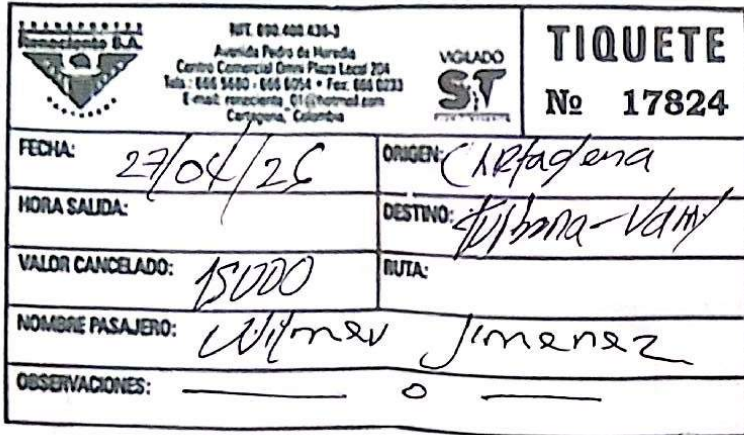 TRANSPORTES
Renaciente S.A.
NIT. 890.400.436-3
Avenida Pedro de Heredia
Centro Comercial Omni Plaza Local 204
Tels.: 666 5680 - 666 6054 • Fax: 666 0233
E-mail: renaciente_01@hotmail.com
Cartagena, Colombia
VIGILADO
ST
TIQUETE
Nº 17824
FECHA: 27/04/26
ORIGEN: Cartagena
HORA SALIDA:
DESTINO: Turbana-
VALOR CANCELADO: 15000
RUTA:
NOMBRE PASAJERO: Wilmer Jimenez
OBSERVACIONES: — o —